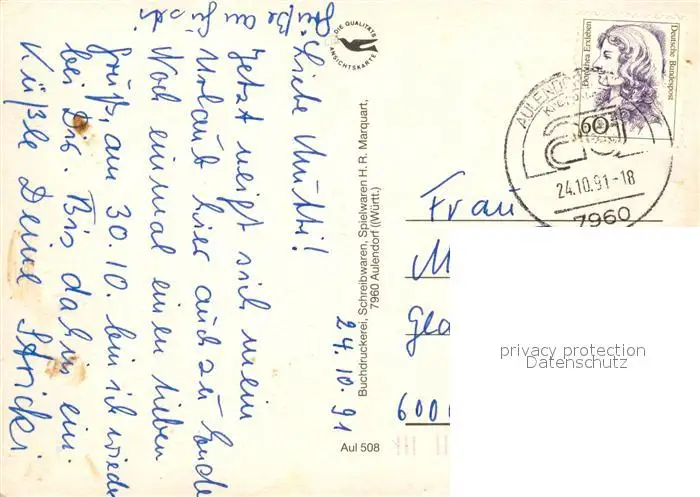 24.10.91
Liebe Mutti!
Jetzt neigt sich mein
Urlaub hier auch zu Ende
Noch einmal einen lieben
Gruß, am 30.10. bin ich wieder
bei Dir. Bis dahin ein
Küßle Deine
Grüße an
DIE QUALITÄTS
ANSICHTSKARTE
Buchdruckerei, Schreibwaren, Spielwaren H. R. Marquart,
7960 Aulendorf (Württ.)
Aul 508
Dorothea Erxleben
Deutsche Bundespost
60
AULENDORF
24.10.91-18
7960
Frau
M
Gla
6000
privacy protection
Datenschutz